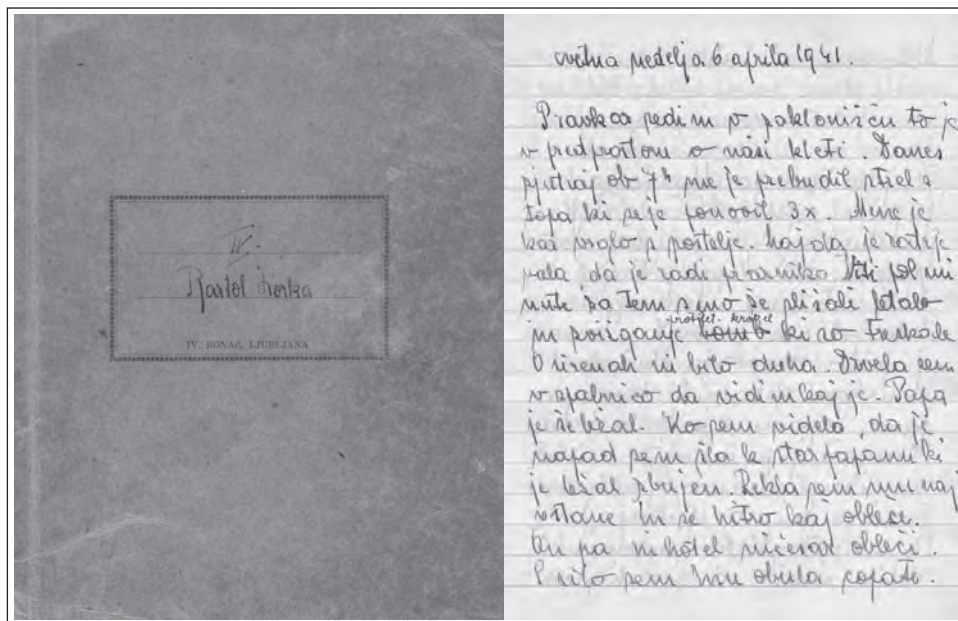 IV.
Bartol Zorka
IV. BONAČ, LJUBLJANA
cvetna nedelja 6 aprila 1941.
Pravkar sedim v zaklonišču to je
v predprostoru v naši kleti. Danes
zjutraj ob 7h me je prebudil strel s
topa ki se je ponovil 3x. Mene je
kar vrglo s postelje.
da je radi praznika. Niti pol mi
nute za tem smo že slišali letalo
in šviganje protilet. krogel bomb ki so treskale
ni bilo duha. Drvela sem
v spalnico da vidim kaj je. Papa
je že bežal. Ko sem videla, da je
napad sem šla k starpapanu ki
je ležal zbujen. Rekla sem mu naj
vstane in se hitro kaj obleče.
On pa ni hotel ničesar obleči.
S silo sem mu obula copate.